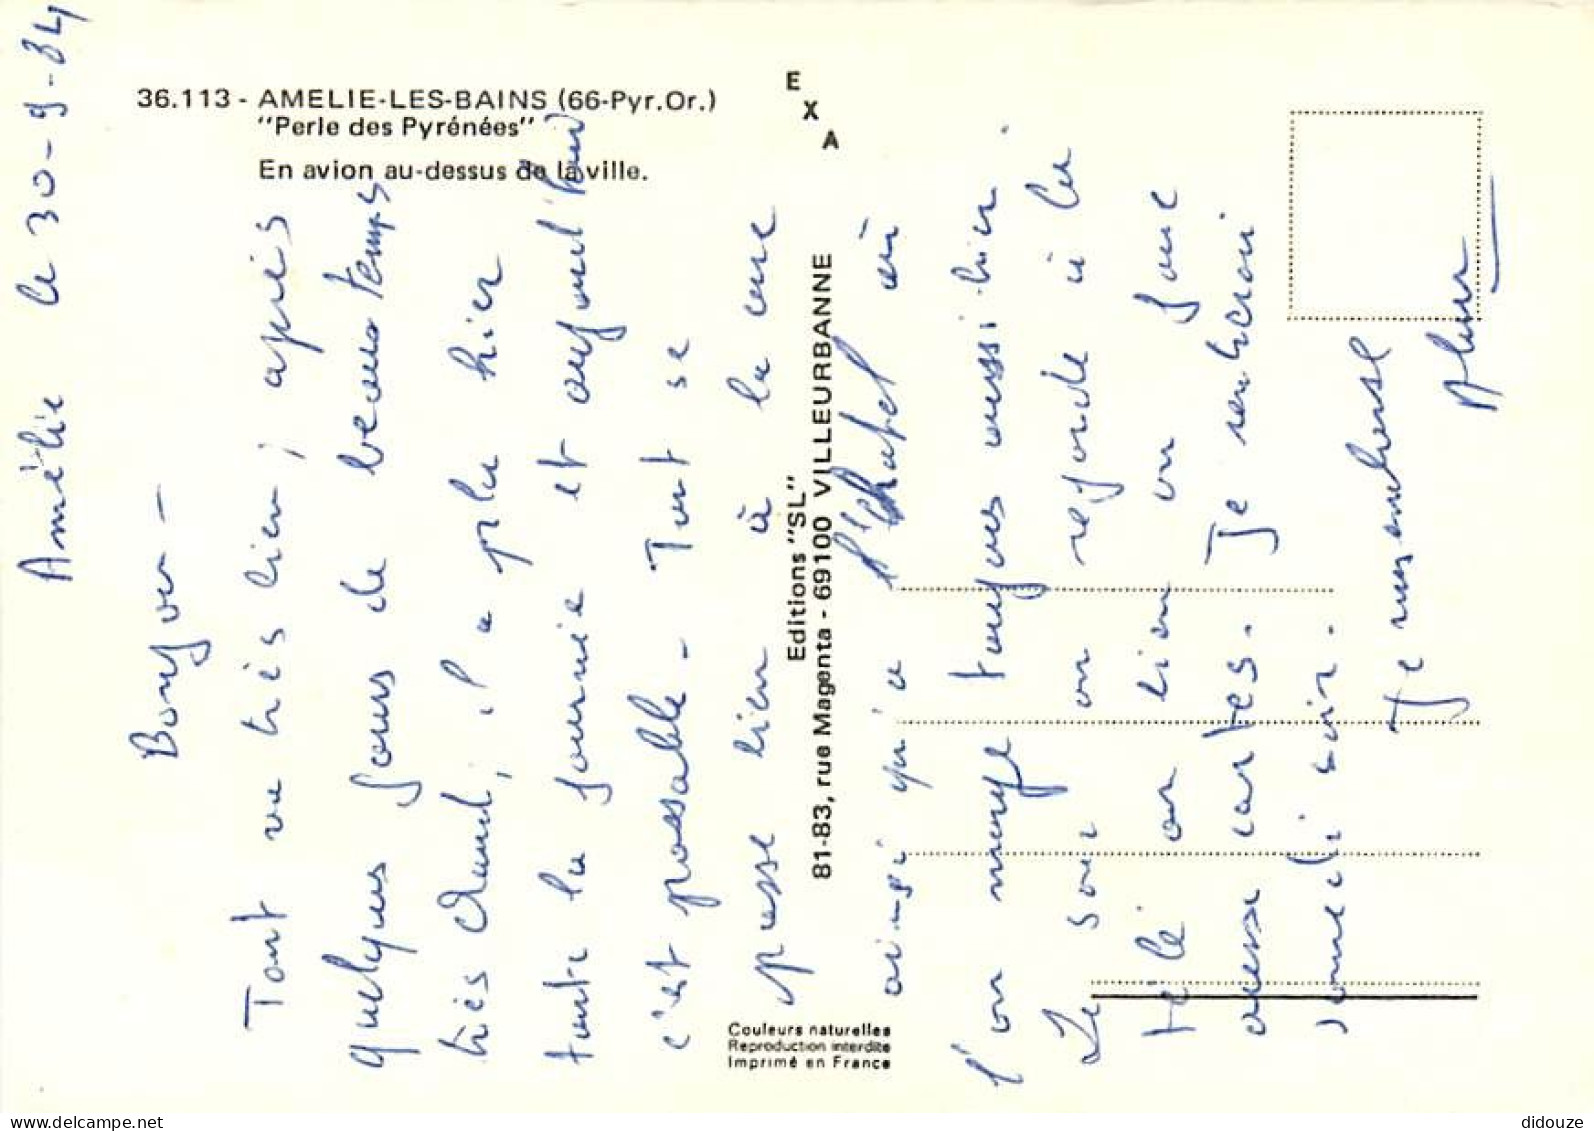 36.113 - AMELIE-LES-BAINS (66-Pyr.Or.)
"Perle des Pyrénées"
En avion au-dessus de la ville.
E
X
A
Editions "SL"
81-83, rue Magenta - 69100 VILLEURBANNE
Couleurs naturelles
Reproduction interdite
Imprimé en France
Amélie le 30-9-84
Bonjour -
Tout va très bien, après
quelques jours de beau temps
très chaud, il a plu hier
toute la journée et aujourd'hui
c'est passable - Tout se
passe bien à la cure
ainsi qu'a l'hotel où
l'on mange toujours aussi bien.
Le soir on regarde à la
télé ou bien on joue
aux cartes. Je rentrerai
samedi soir.
Je vous embrasse
delcampe.net
didouze